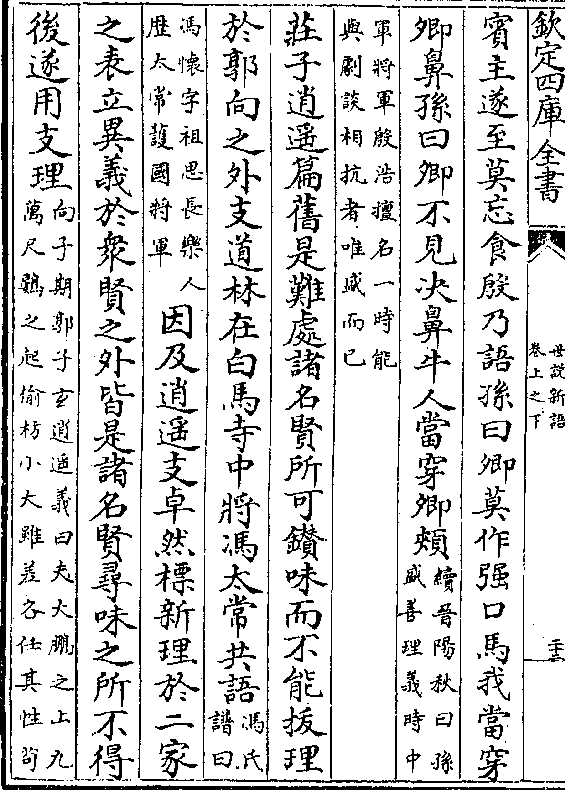 欽定四庫全書
世說新語
卷上之下
二十三
賓主遂至莫忘食殷乃語孫曰卿莫作强口馬我當穿
卿鼻孫曰卿不見决鼻牛人當穿卿頰
續晉陽秋曰孫
盛善理義時中
軍將軍殷浩擅名一時能
與劇談相抗者唯盛而已
莊子逍遥篇舊是難處諸名賢所可鑽味而不能拔理
於郭向之外支道林在白馬寺中將馮太常共語
馮氏
譜曰
馮懷字祖思長樂人
歴太常護國將軍
因及逍遥支卓然標新理於二家
之表立異義於衆賢之外皆是諸名賢尋味之所不得
後遂用支理
向子期郭子玄逍遥義曰夫大鵬之上九
萬尺鷃之起榆枋小大雖差各任其性茍